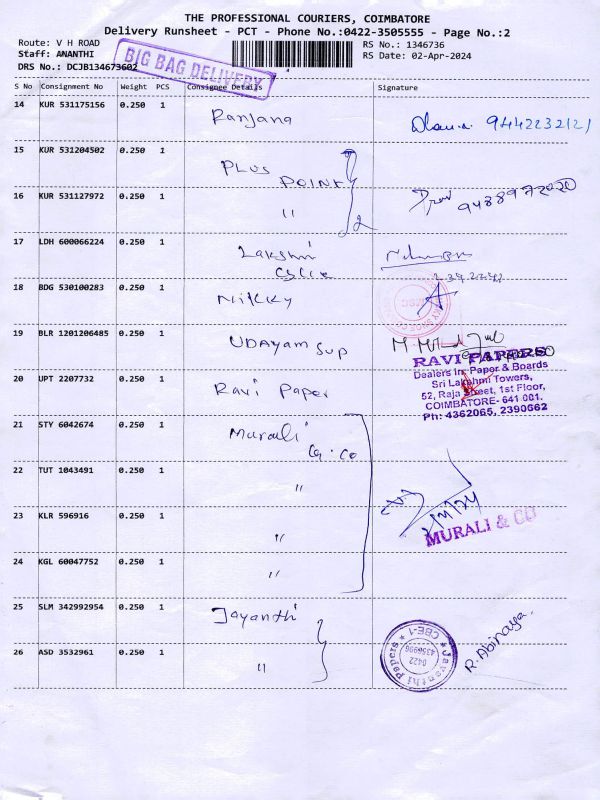 THE PROFESSIONAL COURIERS, COIMBATORE
Delivery Runsheet - PCT - Phone No.:0422-3505555 - Page No.:2
Route: V H ROAD
RS No.: 1346736
Staff: ANANTHI
RS Date: 02-Apr-2024
DRS No.: DCJB134673602
BIG BAG DELIVERY
S No Consignment No Weight PCS Consignee Details Signature
14 KUR 531175156 0.250 1 Ranjana 9442232121
15 KUR 531204502 0.250 1 PLUS POINT
16 KUR 531127972 0.250 1 " 2 9488972020
17 LDH 600066224 0.250 1 Lakshmi
18 BDG 530100283 0.250 1 Nikky
19 BLR 1201206485 0.250 1 UDAYam SUP
20 UPT 2207732 0.250 1 Ravi Paper
RAVI PAPERS
Dealers in Paper & Boards
Sri Lakshmi Towers,
52, Raja Street, 1st Floor,
COIMBATORE- 641 001.
Ph: 4362065, 2390662
21 STY 6042674 0.250 1 Murali & Co
22 TUT 1043491 0.250 1 "
23 KLR 596916 0.250 1 "
MURALI & CO
24 KGL 60047752 0.250 1 "
25 SLM 342992954 0.250 1 Jayanthi
26 ASD 3532961 0.250 1 "
Jayanthi Papers
CBE-1
0422
4356996
R. Abinaya.